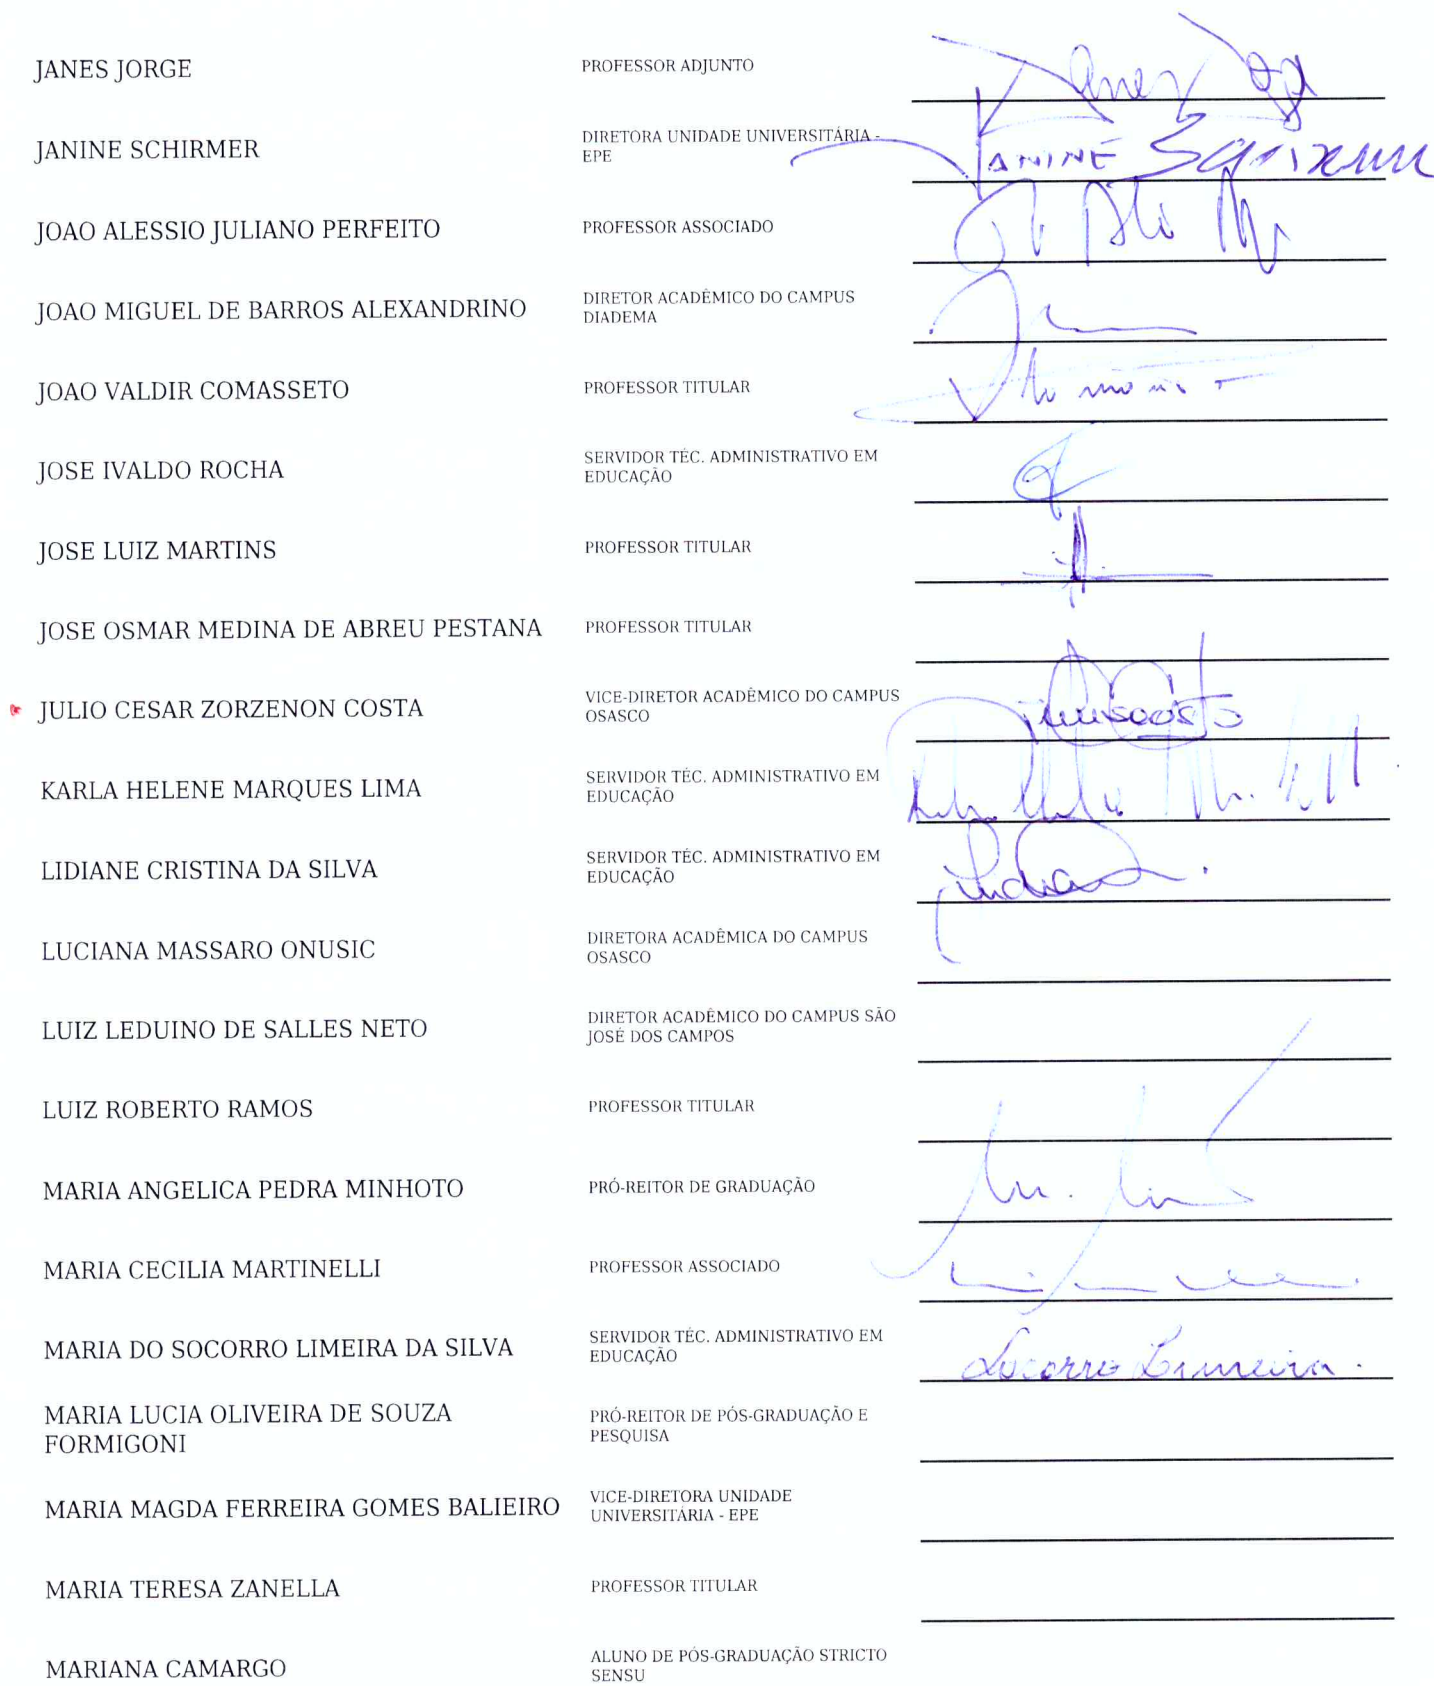 JANES JORGE
PROFESSOR ADJUNTO
JANINE SCHIRMER
DIRETORA UNIDADE UNIVERSITÁRIA -
EPE
JANINE SCHIRMER
JOAO ALESSIO JULIANO PERFEITO
PROFESSOR ASSOCIADO
JOAO MIGUEL DE BARROS ALEXANDRINO
DIRETOR ACADÊMICO DO CAMPUS
DIADEMA
JOAO VALDIR COMASSETO
PROFESSOR TITULAR
JOSE IVALDO ROCHA
SERVIDOR TÉC. ADMINISTRATIVO EM
EDUCAÇÃO
JOSE LUIZ MARTINS
PROFESSOR TITULAR
JOSE OSMAR MEDINA DE ABREU PESTANA
PROFESSOR TITULAR
JULIO CESAR ZORZENON COSTA
VICE-DIRETOR ACADÊMICO DO CAMPUS
OSASCO
KARLA HELENE MARQUES LIMA
SERVIDOR TÉC. ADMINISTRATIVO EM
EDUCAÇÃO
LIDIANE CRISTINA DA SILVA
SERVIDOR TÉC. ADMINISTRATIVO EM
EDUCAÇÃO
LUCIANA MASSARO ONUSIC
DIRETORA ACADÊMICA DO CAMPUS
OSASCO
LUIZ LEDUINO DE SALLES NETO
DIRETOR ACADÊMICO DO CAMPUS SÃO
JOSÉ DOS CAMPOS
LUIZ ROBERTO RAMOS
PROFESSOR TITULAR
MARIA ANGELICA PEDRA MINHOTO
PRÓ-REITOR DE GRADUAÇÃO
MARIA CECILIA MARTINELLI
PROFESSOR ASSOCIADO
MARIA DO SOCORRO LIMEIRA DA SILVA
SERVIDOR TÉC. ADMINISTRATIVO EM
EDUCAÇÃO
Socorro Limeira.
MARIA LUCIA OLIVEIRA DE SOUZA
FORMIGONI
PRÓ-REITOR DE PÓS-GRADUAÇÃO E
PESQUISA
MARIA MAGDA FERREIRA GOMES BALIEIRO
VICE-DIRETORA UNIDADE
UNIVERSITÁRIA - EPE
MARIA TERESA ZANELLA
PROFESSOR TITULAR
MARIANA CAMARGO
ALUNO DE PÓS-GRADUAÇÃO STRICTO
SENSU